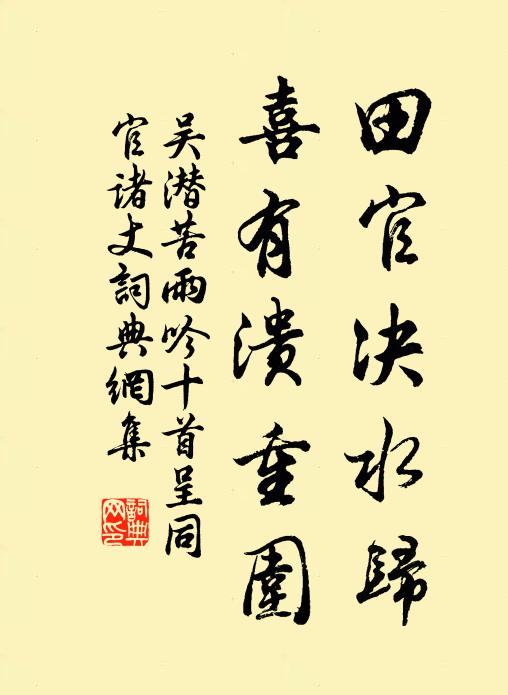 田官决水歸
喜有潰重圍
吴潜苦雨吟十首呈同
官诸丈詞典網集
詞典
网印